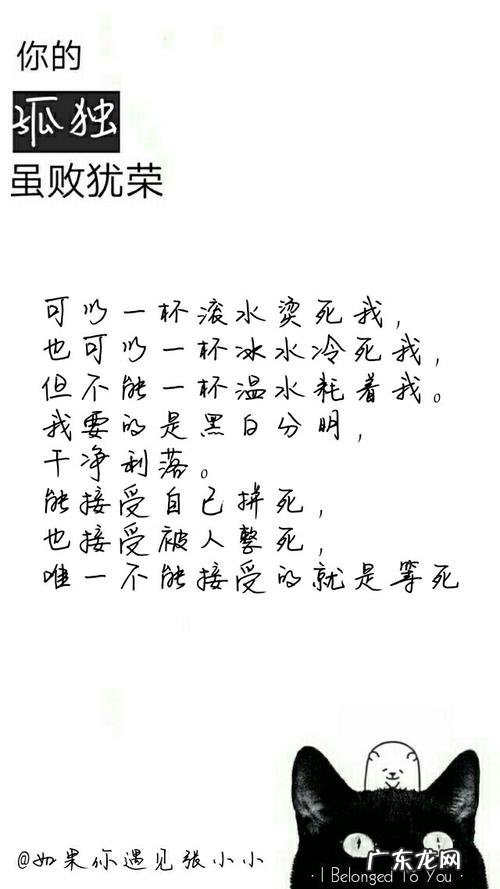 你的
孤独
虽败犹荣
可以一杯滚水烫死我，
也可以一杯冰水冷死我，
但不能一杯温水耗着我。
我要的是黑白分明，
干净利落。
能接受自己拼死，
也接受被人整死，
唯一不能接受的就是等死
@如果你遇见张小小
广东龙网
· I Belonged To You ·